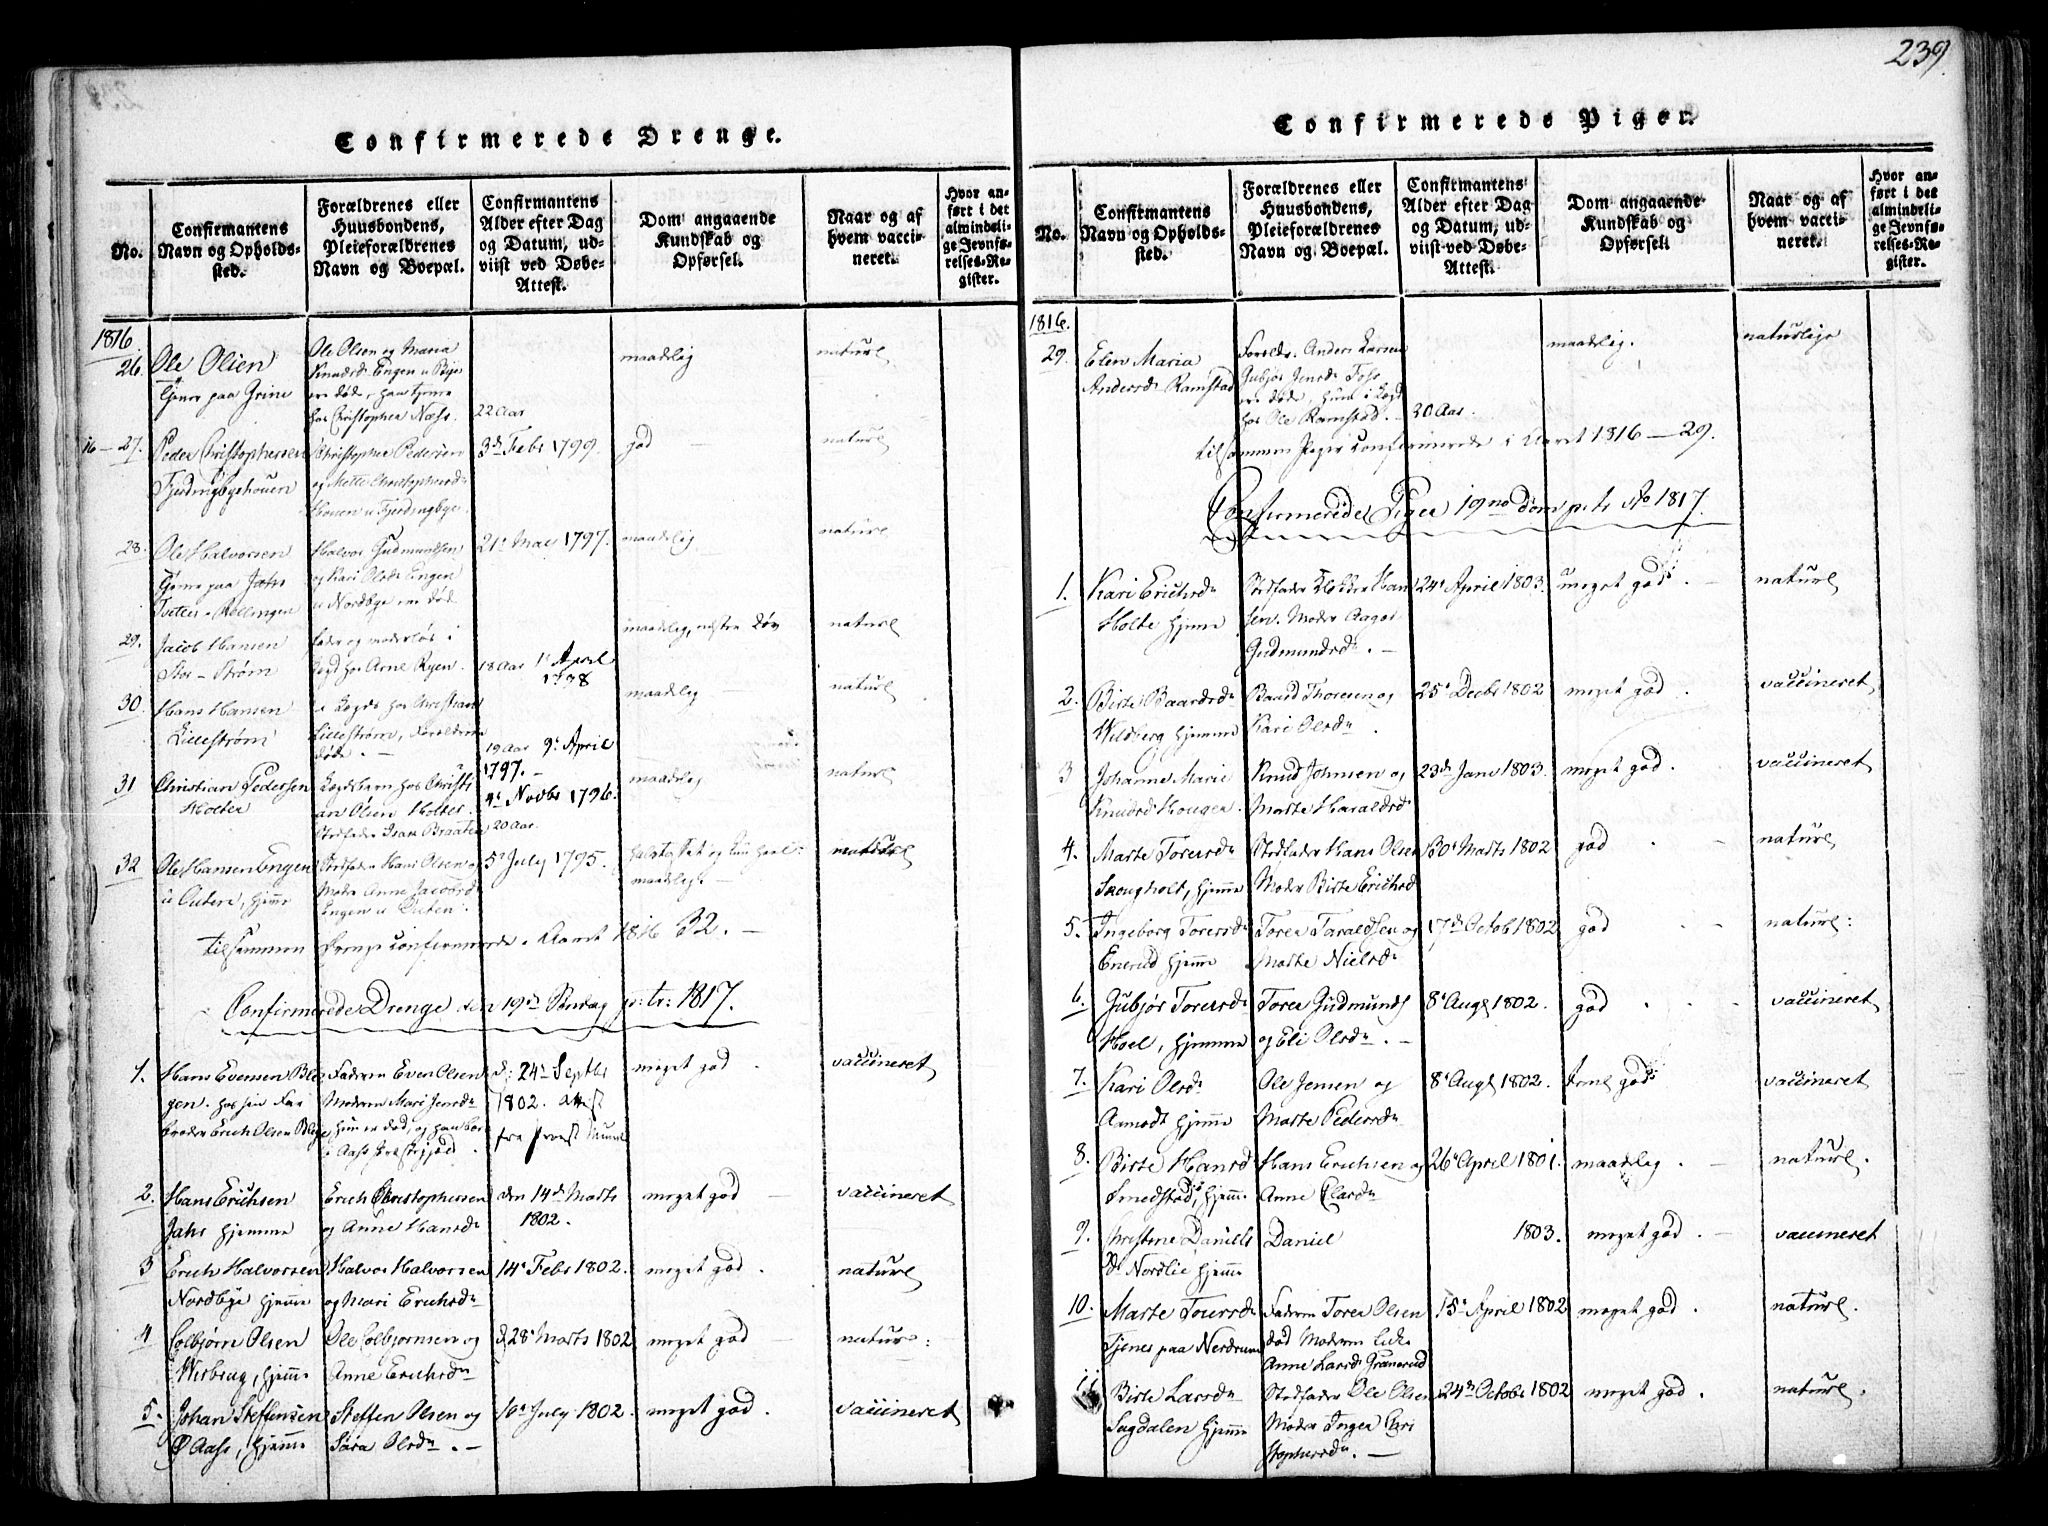 239.
Confirmerede Drenge.
No.
Confirmantens
Navn og Opholds-
sted.
Forældrenes eller
Huusbondens,
Pleieforældrenes
Navn og Boepæl.
Confirmantens
Alder efter Dag
og Datum, ud-
viist ved Døbe-
Attest.
Dom angaaende
Kundskab og
Opførsel.
Naar og af
hvem vacci-
neret.
Hvor an-
ført i det
almindeli-
ge Jevnfø-
relses-Re-
gister.
1816.
26. Ole Olsen
Tjener paa Grine
Ole Olsen og Maria
Knudsd. Engen u Bye
ere døde, han tjener
hos Christopher Næss.
22 Aar
maadelig
naturl
16 — 27. Peder Christophersen
Fjerdingbyehouen
Christopher Pedersen
og Mette Christophersd.
Houen u Fjerdingbye.
3d Febr 1799.
god
naturl
28. Ole Halvorsen
Tjener paa Jahr
Halvor Gudmundsen
og Kari Olsdr Engen
u Nordbye ere død
21. Mai 1797.
maadelig
naturl
29. Jacob Hansen
Stor-Strøm
fader og moderløs i
Legd hos Arne Ryen.
18 Aar 1. April
1798
maadelig, næsten Døv
naturl
30. Hans Hansen
Lillestrøm
i Legd hos Christian
Lillestrøm, Foreldrene
døde. —
19 Aar 9. April
1797. —
maadelig
naturl
31 Christian Pedersen
Holter
Legdsbarn hos Christi
an Olsen Holter.
Stedfader Isak Braaten
9. Novbr 1796.
20 Aar.
maadelig
naturl
32 Ole Hansen Engen
u Outern, hjemme
Stedfader Hans Olsen og
Moder Anne Jacobsd.
Engen u Outen.
5. July 1795.
maadelig. —
naturl
tilsammen Drenge confirmerede i Aaret 1816 32. —
Confirmerede Drenge den 19de Søndag p: tr: 1817.
1. Hans Evensen Blej
gen. hos sin Far
broder Erich Olsen
Faderen Even Olsen
Moderen Mari Jensdr
hun er død, og han boer
i Aass Præstegjeld.
d: 24. Septbr
1802. attest
fra Provst
meget god.
vaccineret
2. Hans Erichsen
Jahr hjemme
Erich Christophersen
og Anne Hansdr
den 14de Marts
1802.
meget god
vaccineret
3 Erich Halvorsen
Nordbye hjemme
Halvor Halvorsen
og Mari Erichsdr
14. Febr 1802.
meget god.
naturl
4 Colbjørn Olsen
Wisberg, hjemme
Ole Colbjørnsen og
Anne Erichsdr
d 28. Marts 1802
meget god
natur:
5. Johan Steffensen
Ø Aass, hjemme
Steffen Olsen og
Sara Olsdr. —
10. July 1802.
meget god.
vaccineret
Confirmerede Piger.
No.
Confirmantens
Navn og Opholds-
sted.
Forældrenes eller
Huusbondens,
Pleieforældrenes
Navn og Boepæl.
Confirmantens
Alder efter Dag
og Datum, ud-
viist ved Døbe-
Attest.
Dom angaaende
Kundskab og
Opførsel.
Naar og af
hvem vacci-
neret.
Hvor an-
ført i det
almindeli-
ge Jevnfø-
relses-Re-
gister.
1816.
29. Elen Maria
Andersdr Ramstad
Foreldr. Anders Larsen
Gubjør Jensdr
ere døde, hun i Legd
hos Ole Ramstad.
20 Aar.
maadelig.
naturlige
tilsammen Piger confirmerede i Aaret 1816 — 29.
Confirmerede Piger 19no dom p. tr Ao 1817.
1. Kari Erichsdr
Holte hjemme
Stedfader Peder Han
sen. Moder Aagot
Gudmundsdr. —
24. April 1803.
meget god. —
naturl
2. Birte Baardsdr
Wildberg hjemme
Baard Thoresen og
Kari Olsdr.
25. Decbr 1802
meget god.
vaccineret
3 Johanne Marie
Knudsd Hougen.
Knud Johnsen og
Marte Haraldsd
23d Janr 1803.
meget god.
vaccineret
4. Marte Toresdr
Skougholt, hjemme
Stedfader Hans Olsen
Moder Birte Erichsd
30. Marts 1802
god
naturl
5. Ingeborg Toresdr
Enerud hjemme
Tore Taraldsen og
Marte Nielsdr
17d Octob 1802
god
naturl:
6. Gubjør Toresdr
Hoel, hjemme
Tore Gudmunds
og Eli Olsdr. —
8. Augs 1802.
god
vaccineret
7. Kari Olsdr
Aamodt hjemme
Ole Jensen og
Marte Pedersdr
8. Augs 1802.
temel god
vaccineret
8. Birte Hansd
Smedstad, hjemme
Hans Erichsen og
Anne Clarsdr
26. April 1801.
maadelig. —
naturl.
9. Christine Daniels
dr Nordlie hjemme
Daniel
1803.
meget god. —
vaccineret
10. Marte Toresdr
Tjener paa Nerdrum
Faderen Tore Olsen
død Moderen
Anne Larsdr Granerud
15. April 1802
meget god.
naturl.
11. Birte Larsdr
Sagdalen hjemme
Stedfader Ole Olsen
Moder Inger Chri
stophersdr. —
24de Octobr 1802
meget god.
naturl.